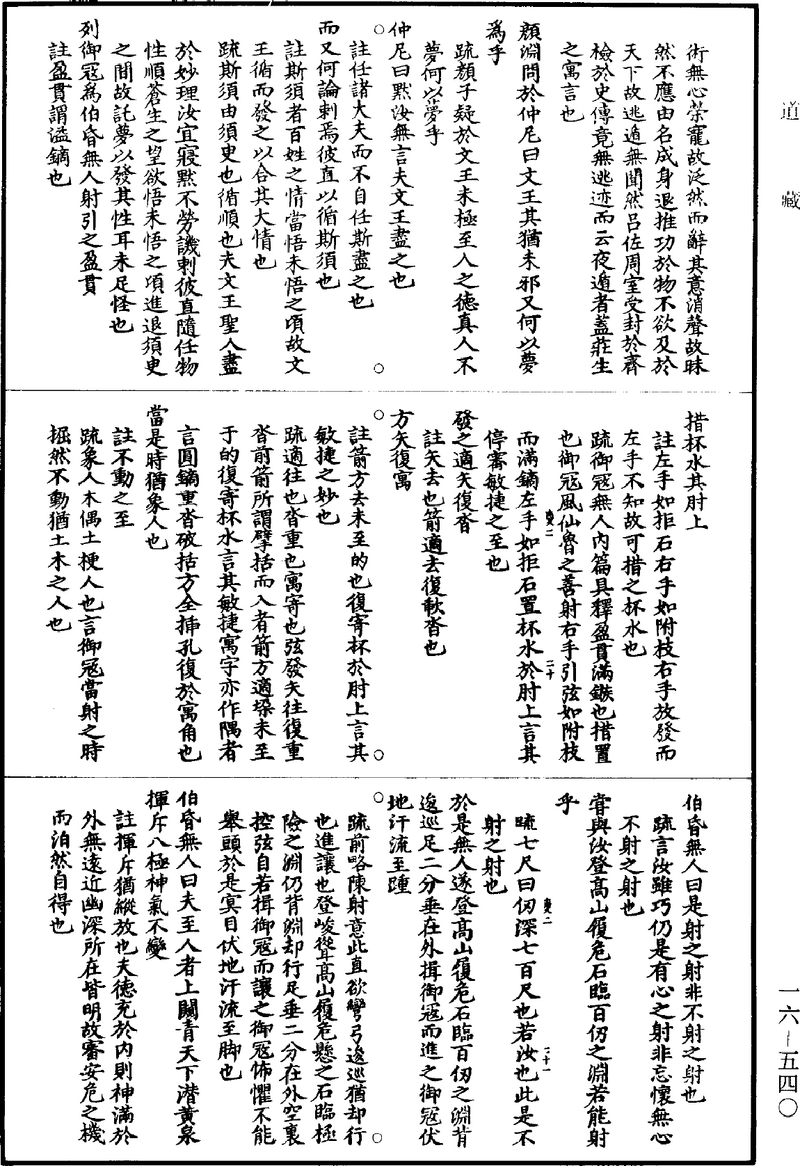 道藏
術無心榮寵故泛然而辭其意消聲故昧
然不應由名成身退推功於物不欲及於
天下故逃遁無聞然呂佐周室受封於齊
檢於史傳竟無逃迹而云夜遁者蓋莊生
之寓言也
顏淵問於仲尼曰文王其猶未邪又何以夢
為乎
疏顏子疑於文王未極至人之德真人不
夢何以夢乎
仲尼曰默汝無言夫文王盡之也
註任諸大夫而不自任斯盡之也
而又何論刺焉彼直以循斯須也
註斯須者百姓之情當悟未悟之頃故文
王循而發之以合其大情也
疏斯須由須臾也循順也夫文王聖人盡
於妙理汝宜寢默不勞譏刺彼直隨任物
性順蒼生之望欲悟未悟之頃進退須臾
之間故託夢以發其性耳未足怪也
列御寇為伯昏無人射引之盈貫
註盈貫謂溢鏑也
措杯水其肘上
註左手如拒石右手如附枝右手放發而
左手不知故可措之杯水也
疏御寇無人內篇具釋盈貫滿鏃也措置
也御寇風仙魯之善射右手引弦如附枝
而滿鏑左手如拒石置杯水於肘上言其
停審敏捷之至也
發之適矢復沓
註矢去也箭適去復歃沓也
方矢復寓
註箭方去未至的也復寄杯於肘上言其
敏捷之妙也
疏適往也沓重也寓寄也弦發矢往復重
沓前箭所謂擘括而入者箭方適垛未至
于的復寄杯水言其敏捷寓字亦作隅者
言圓鏑重沓破括方全插孔復於寓角也
當是時猶象人也
註不動之至
疏象人木偶土梗人也言御寇當射之時
掘然不動猶土木之人也
伯昏無人曰是射之射非不射之射也
疏言汝雖巧仍是有心之射非忘懷無心
不射之射也
嘗與汝登高山履危石臨百仞之淵若能射
乎
疏七尺曰仞深七百尺也若汝也此是不
射之射也
於是無人遂登高山履危石臨百仞之淵背
逡巡足二分垂在外揖御寇而進之御寇伏
地汗流至踵
疏前略陳射意此直欲彎弓逡巡猶却行
也進讓也登峻聳高山履危懸之石臨極
險之淵仍背淵却行足垂二分在外空裏
控弦自若揖御寇而讓之御寇怖懼不能
舉頭於是冥目伏地汗流至脚也
伯昏無人曰夫至人者上闚青天下潛黃泉
揮斥八極神氣不變
註揮斥猶縱放也夫德充於內則神滿於
外無遠近幽深所在皆明故審安危之機
而泊然自得也
一六—五四〇